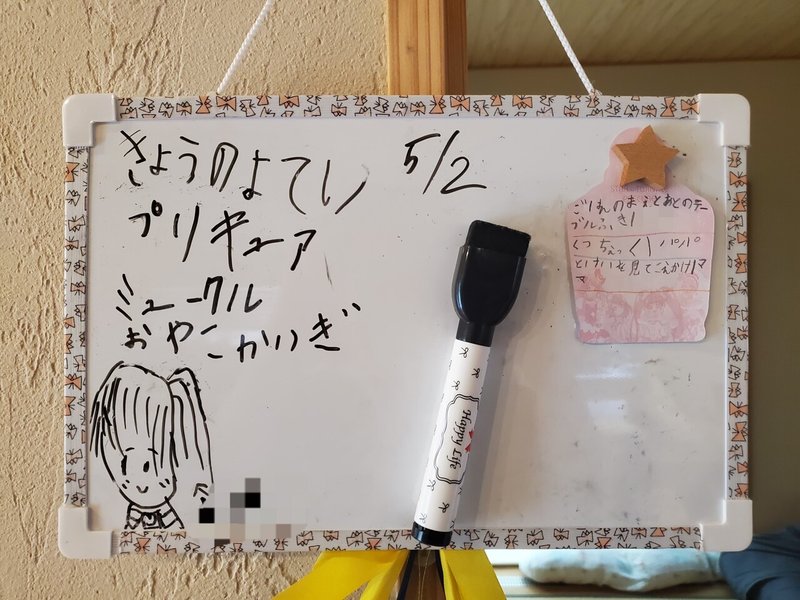 きょうのよてい 5/2
プリキュア
ミュークル
おやこかいぎ
ごはんのまえとあとのテー
ブルふき!
くつちぇっく! パパ
とけいを見てこえかけ!マ
マ
Happy Life